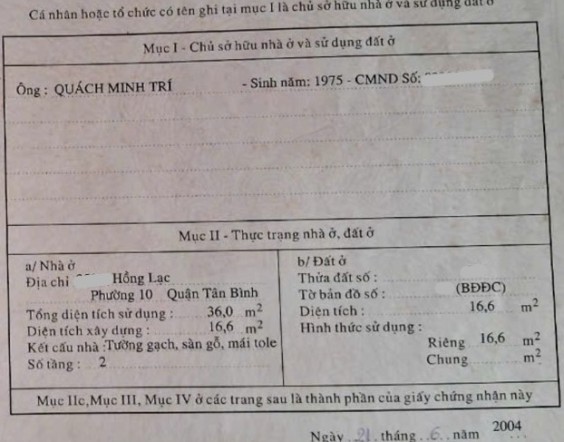 Cá nhân hoặc tổ chức có tên ghi tại mục I là chủ sở hữu nhà ở và sử dụng đất ở
Mục I - Chủ sở hữu nhà ở và sử dụng đất ở
Ông : QUÁCH MINH TRÍ - Sinh năm: 1975 - CMND Số:
Mục II - Thực trạng nhà ở, đất ở
a/ Nhà ở
Địa chỉ Hồng Lạc
Phường 10 Quận Tân Bình
Tổng diện tích sử dụng : 36,0 m²
Diện tích xây dựng : 16,6 m²
Kết cấu nhà :Tường gạch, sàn gỗ, mái tole
Số tầng : 2
b/ Đất ở
Thửa đất số :
Tờ bản đồ số : (BĐĐC)
Diện tích : 16,6 m²
Hình thức sử dụng :
Riêng 16,6 m²
Chung m²
Mục IIc,Mục III, Mục IV ở các trang sau là thành phần của giấy chứng nhận này
Ngày 21 tháng 6 năm 2004